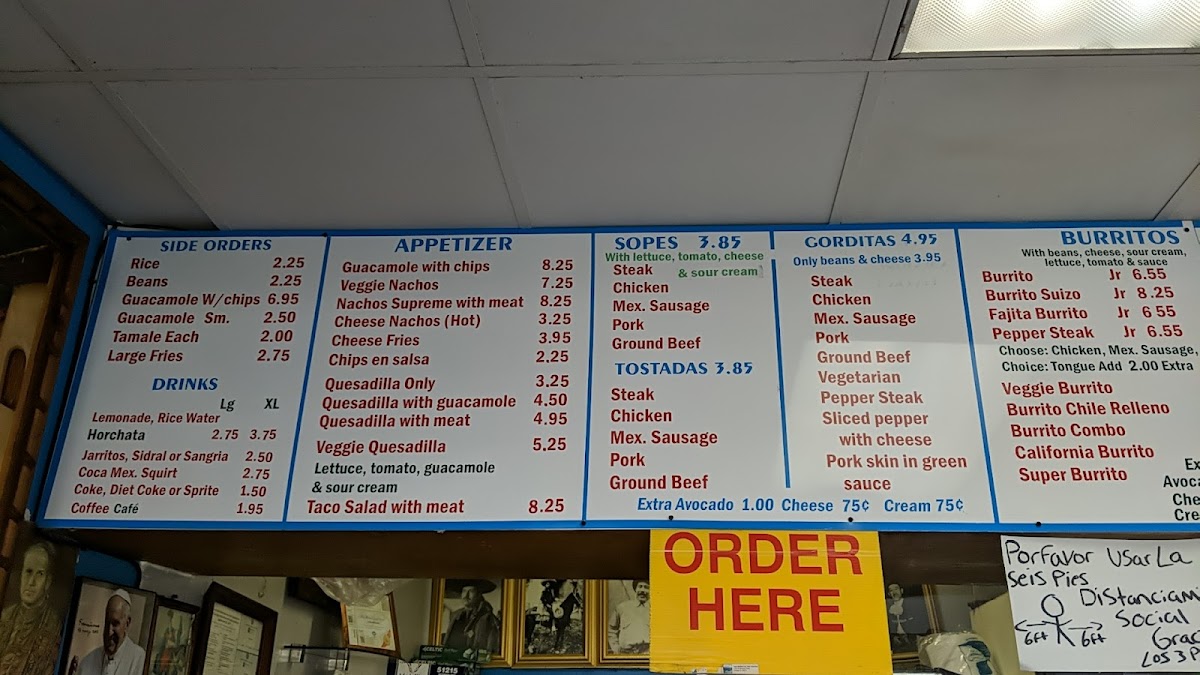 SIDE ORDERS
Rice 2.25
Beans 2.25
Guacamole W/chips 6.95
Guacamole Sm. 2.50
Tamale Each 2.00
Large Fries 2.75
DRINKS
Lg XL
Lemonade, Rice Water
Horchata 2.75 3.75
Jarritos, Sidral or Sangria 2.50
Coca Mex. Squirt 2.75
Coke, Diet Coke or Sprite 1.50
Coffee Café 1.95
APPETIZER
Guacamole with chips 8.25
Veggie Nachos 7.25
Nachos Supreme with meat 8.25
Cheese Nachos (Hot) 3.25
Cheese Fries 3.95
Chips en salsa 2.25
Quesadilla Only 3.25
Quesadilla with guacamole 4.50
Quesadilla with meat 4.95
Veggie Quesadilla 5.25
Lettuce, tomato, guacamole
& sour cream
Taco Salad with meat 8.25
SOPES 3.85
With lettuce, tomato, cheese
& sour cream
Steak
Chicken
Mex. Sausage
Pork
Ground Beef
TOSTADAS 3.85
Steak
Chicken
Mex. Sausage
Pork
Ground Beef
GORDITAS 4.95
Only beans & cheese 3.95
Steak
Chicken
Mex. Sausage
Pork
Ground Beef
Vegetarian
Pepper Steak
Sliced pepper
with cheese
Pork skin in green
sauce
Extra Avocado 1.00 Cheese 75¢ Cream 75¢
BURRITOS
With beans, cheese, sour cream,
lettuce, tomato & sauce
Burrito Jr 6.55
Burrito Suizo Jr 8.25
Fajita Burrito Jr 6 55
Pepper Steak Jr 6.55
Choose: Chicken, Mex. Sausage,
Choice: Tongue Add 2.00 Extra
Veggie Burrito
Burrito Chile Relleno
Burrito Combo
California Burrito
Super Burrito
Ex
Avoca
Che
Cre
ORDER
HERE
Porfavor Usar La
Seis Pies
Distanciam
Social
6ft 6ft
Grac
Los 3 P
51215